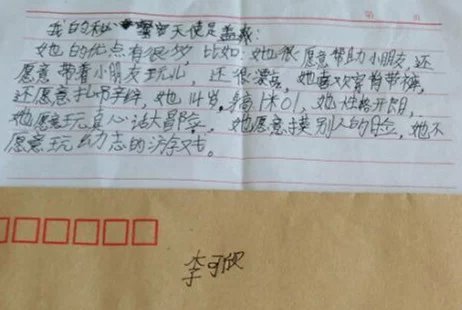 我的秘密天使是孟贰:
她的优点有很多,比如:她很愿意帮助小朋友,还
愿意带着小朋友玩儿,还很漂亮,她喜欢穿背带裤,
还愿意扎吊字辫,她14岁,1米01,她性格开朗,
她愿玩真心话大冒险,她愿意摸别人的脸,她不
愿意玩幼志的游字戈。
李可欣